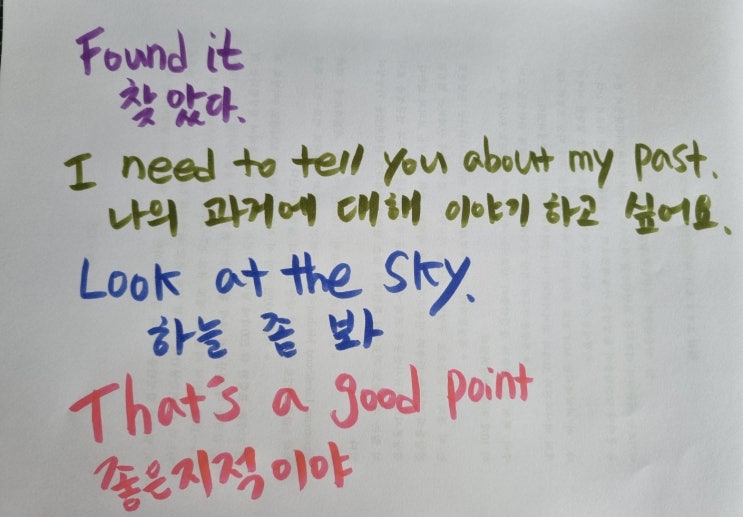 Found it
찾았다.
I need to tell you about my past.
나의 과거에 대해 이야기 하고 싶어요.
Look at the sky.
하늘 좀 봐
That's a good point
좋은지적이야